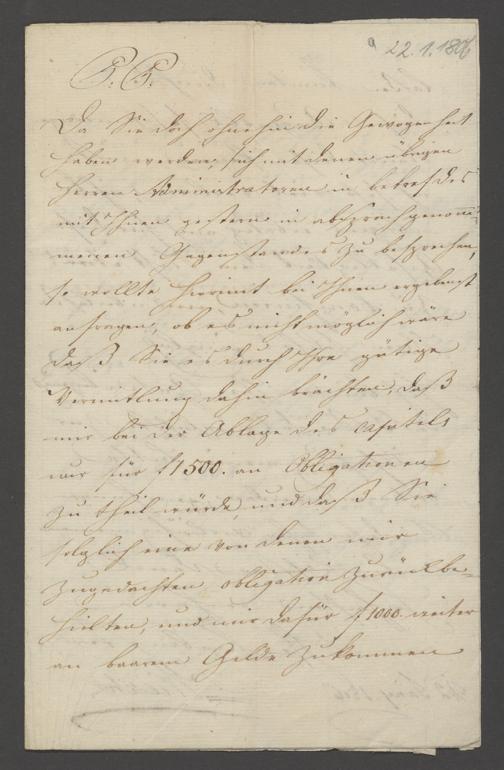 22.1.1806
P. P.
Da Sie doch ohnehin die Gewogenheit
haben werden, sich mit denen übrigen
Herren Administratoren in betref des
mit Ihnen gestern in absprach genom-
menen Gegenstandes zu besprechen,
so wollte hiermit bei Ihnen ergebenst
anfragen, ob es nicht möglich wäre
daß Sie es durch Ihre gütige
Vermittlung dahin brächten, daß
mir bei der Ablage des Capitels
nur für f 1500. an Obligationen
zu theil würde, und daß Sie
folglich eine von denen mir
zugedachten obligation zurückbe-
hielten, und mir dafür f 1000. weiter
an baarem Gelde zukommen